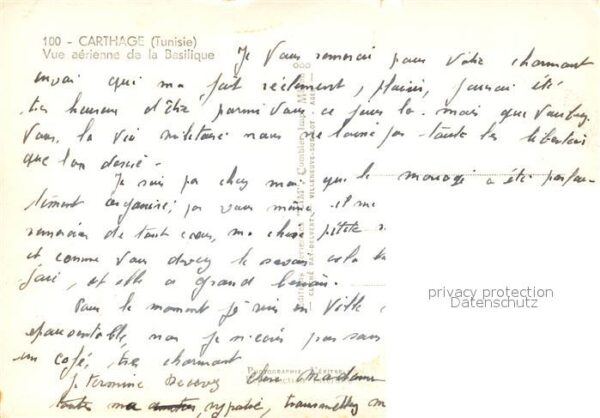 100 - CARTHAGE (Tunisie)
Vue aérienne de la Basilique
Je vous remercie pour votre charmant
envoi qui m'a fait réellement, plaisir, j'aurai été
très heureux d'être parmi vous ce jour là - mais que voulez
vous, la vie militaire nous ne laisse pas toute les libertés
que l'on désire -
Je sais par chez moi, que le mariage a été parfai-
tement organisé; par vous même et me
remercier de tout cœur, ma chère petite
et comme vous devez le savoir cela
faire, et elle a grand besoin.
Pour le moment je suis en ville
épouvantable, mon je
un café, très charmant
Je termine Recevez chère Madame
toutes ma sympathie, transmettez
privacy protection
Datenschutz